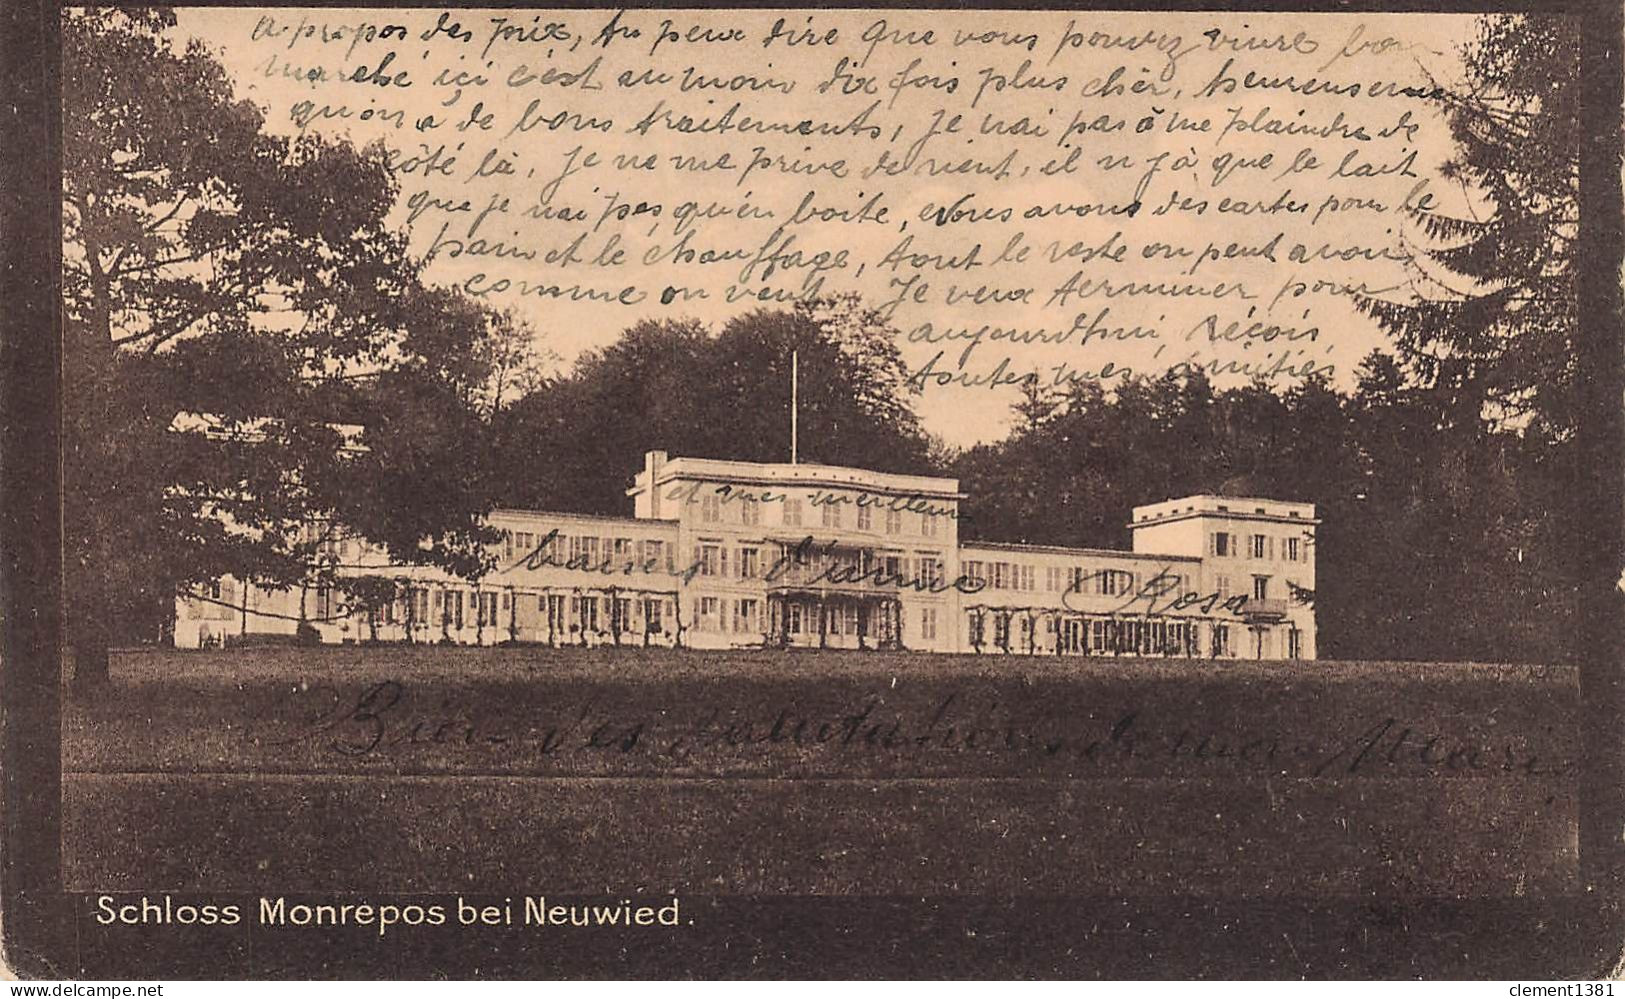 A propos des prix, tu peux dire que vous pouvez vivre bon
marché ici c'est au moin dix fois plus chèr, heureusement
qu'on a de bons traitements, je n'ai pas à me plaindre de
côté là, je ne me prive de rient, il n'y à que le lait
que je n'ai pas qu'en boite, nous avons des cartes pour le
pain et le chauffage, tout le reste on peut avoir
comme on veut. Je veux terminer pour
aujourd'hui, reçois,
toutes mes amitiés
et mes meilleurs
baisers d'amie Rosa
Bien des salutations de mon Mari
Schloss Monrepos bei Neuwied.
clement1381